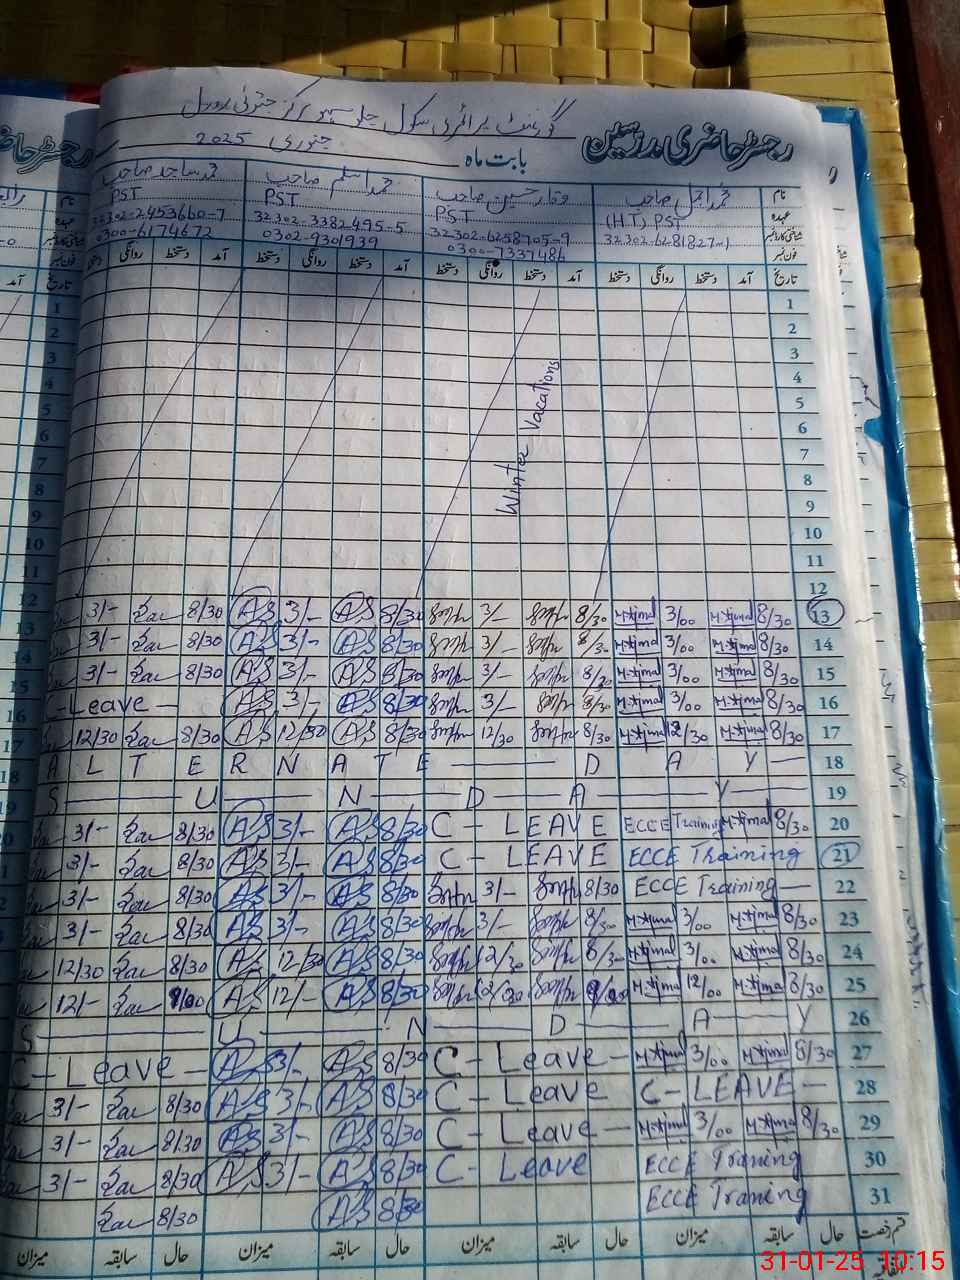 گورنمنٹ پرائمری سکول
جنوری 2025
رجسٹر حاضری مدرسین بابت ماہ
نام محمد اجمل صاحب وقار حسین صاحب محمد اسلم صاحب محمد ساجد صاحب
عہدہ (H.T) PST PST PST PST
شناختی کارڈ نمبر 32302-6281827-1 32302-6258705-9 32302-3382495-5 32302-2453660-7
فون نمبر 0300-7337486 0302-9301939 0300-6174672
تاریخ آمد دستخط روانگی دستخط آمد دستخط روانگی دستخط آمد دستخط روانگی دستخط آمد دستخط روانگی دستخط
1
2
3
4
5
6
7
8
9
10
11
12
Winter Vacations
3/- 8/30 AS 3/- AS 8/30 3/- 8/30 M.Ajmal 3/00 M.Ajmal 8/30 13
3/- 8/30 AS 3/- AS 8/30 3/- 8/30 M.Ajmal 3/00 M.Ajmal 8/30 14
3/- 8/30 AS 3/- AS 8/30 3/- 8/30 M.Ajmal 3/00 M.Ajmal 8/30 15
C-Leave - AS 3/- AS 8/30 3/- 8/30 M.Ajmal 3/00 M.Ajmal 8/30 16
12/30 8/30 AS 12/30 AS 8/30 12/30 8/30 M.Ajmal 12/30 M.Ajmal 8/30 17
A L T E R N A T E — D A Y — 18
S — U — N — D — A — Y — 19
3/- 8/30 AS 3/- AS 8/30 C - LEAVE ECCE Training M.Ajmal 8/30 20
3/- 8/30 AS 3/- AS 8/30 C - LEAVE ECCE Training 21
3/- 8/30 AS 3/- AS 8/30 3/- 8/30 ECCE Training — 22
3/- 8/30 AS 3/- AS 8/30 3/- 8/30 M.Ajmal 3/00 M.Ajmal 8/30 23
12/30 8/30 AS 12/30 AS 8/30 12/30 8/30 M.Ajmal 3/00 M.Ajmal 8/30 24
12/- AS 12/- AS 8/30 12/30 M.Ajmal 12/00 M.Ajmal 8/30 25
S — U — N — D — A — Y 26
C - Leave - AS 3/- AS 8/30 C - Leave - M.Ajmal 3/00 M.Ajmal 8/30 27
3/- 8/30 AS 3/- AS 8/30 C - Leave C - LEAVE - 28
3/- 8/30 AS 3/- AS 8/30 C - Leave - M.Ajmal 3/00 M.Ajmal 8/30 29
3/- 8/30 AS 3/- AS 8/30 C - Leave ECCE Training 30
8/30 AS 8/30 ECCE Traning 31
قسم رخصت حال سابقہ میزان حال سابقہ میزان حال سابقہ میزان حال سابقہ میزان
اتفاقیہ
31-01-25 10:15